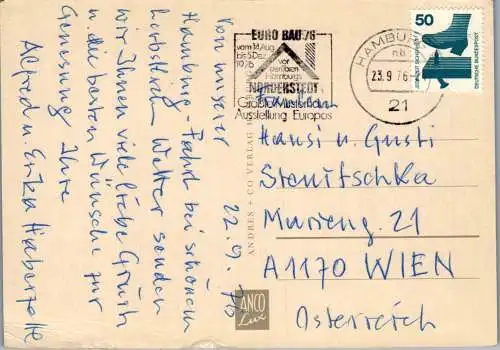 22.9.76
Von unserer
Hamburg-Fahrt bei schönem
herbstlichen Wetter senden
wir Ihnen viele liebe Grüße
u. die besten Wünsche zur
Genesung Ihre
Alfred u. Erika
EURO BAU 76
vom 14. Aug.
bis 5. Dez.
1976
vor
den Toren
Hamburgs
NORDERSTEDT
Größte Musterhaus
Ausstellung Europas
HAMBURG
23.9.76
21
50
JEDERZEIT SICHERHEIT
DEUTSCHE BUNDESPOST
Familie
Hansi u. Gusti
Stenitschka
Marieng. 21
A 1170 WIEN
Österreich
ANDRES + CO VERLAG
ANCO
Lux